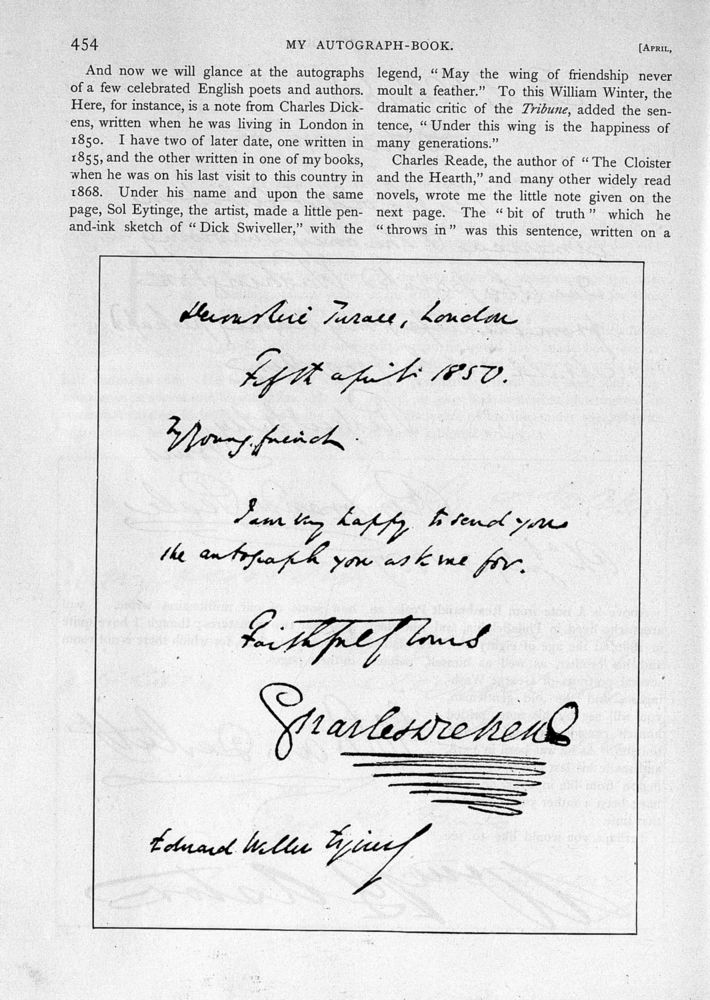 454
MY AUTOGRAPH-BOOK.
[APRIL,
And now we will glance at the autographs
of a few celebrated English poets and authors.
Here, for instance, is a note from Charles Dick-
ens, written when he was living in London in
1850. I have two of later date, one written in
1855, and the other written in one of my books,
when he was on his last visit to this country in
1868. Under his name and upon the same
page, Sol Eytinge, the artist, made a little pen-
and-ink sketch of “Dick Swiveller,” with the
legend, “May the wing of friendship never
moult a feather.” To this William Winter, the
dramatic critic of the Tribune, added the sen-
tence, “Under this wing is the happiness of
many generations.”
Charles Reade, the author of “The Cloister
and the Hearth,” and many other widely read
novels, wrote me the little note given on the
next page. The “bit of truth” which he
“throws in” was this sentence, written on a
Devonshire Terrace, London
Fifth April 1850.
My Young friend
I am very happy to send you
the autograph you ask me for.
Faithfully Yours
Charles Dickens
Edward